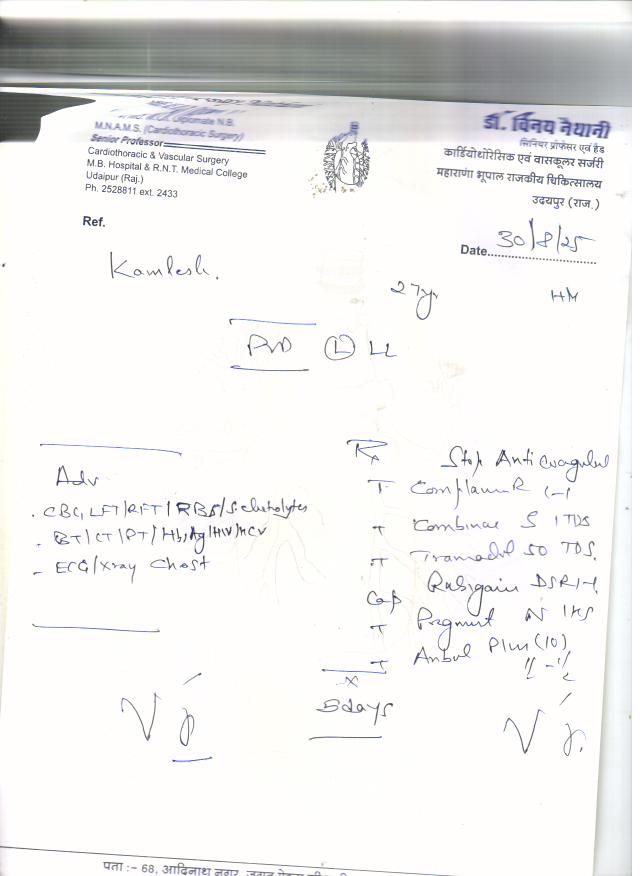 Diplomate N.B.
M.N.A.M.S. (Cardiothoracic Surgery)
Senior Professor
Cardiothoracic & Vascular Surgery
M.B. Hospital & R.N.T. Medical College
Udaipur (Raj.)
Ph. 2528811 ext. 2433
डॉ. विनय नैथानी
सिनियर प्रोफेसर एवं हैड
कार्डियोथोरेसिक एवं वासकूलर सर्जरी
महाराणा भूपाल राजकीय चिकित्सालय
उदयपुर (राज.)
Ref.
Date 30/8/25
Kamlesh.
27yr HM
PVD Ⓛ LL
Adv
. CBC, LFT/RFT/RBS/S. electrolytes
- BT/CT/PT/HbsAg/HIV/HCV
- ECG/Xray Chest
Rx Stop Anti Coagulant
T
T S 1 TDS
T Tramadol 50 TDS.
Cap DSR 1-1
T N 1 HS
T Plus (10) 1/2 - 1/2
x
5 days
पता :- 68, आदिनाथ नगर,